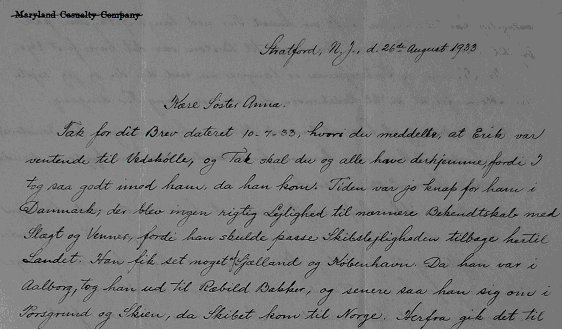 Maryland Casualty Company
Stratford, N. J., d. 26th August 1933
Kære Søster Anna.
Tak for dit Brev dateret 10-7-33, hvori du meddelte, at Erik var
ventende til Vedskølle, og Tak skal du og alle have derhjemme, fordi I
tog saa godt imod ham, da han kom. Tiden var jo knap for ham i
Danmark, der blev ingen rigtig Lejlighed til nærmere Bekendtskab med
Slægt og Venner, fordi han skulde passe Skibslejligheden tilbage hertil
Landet. Han fik set noget af Sjælland og København. Da han var i
Aalborg, tog han ud til Ræbild Bakker, og senere saa han sig om i
Porsgrund og Skien, da Skibet kom til Norge. Herfra gik det til